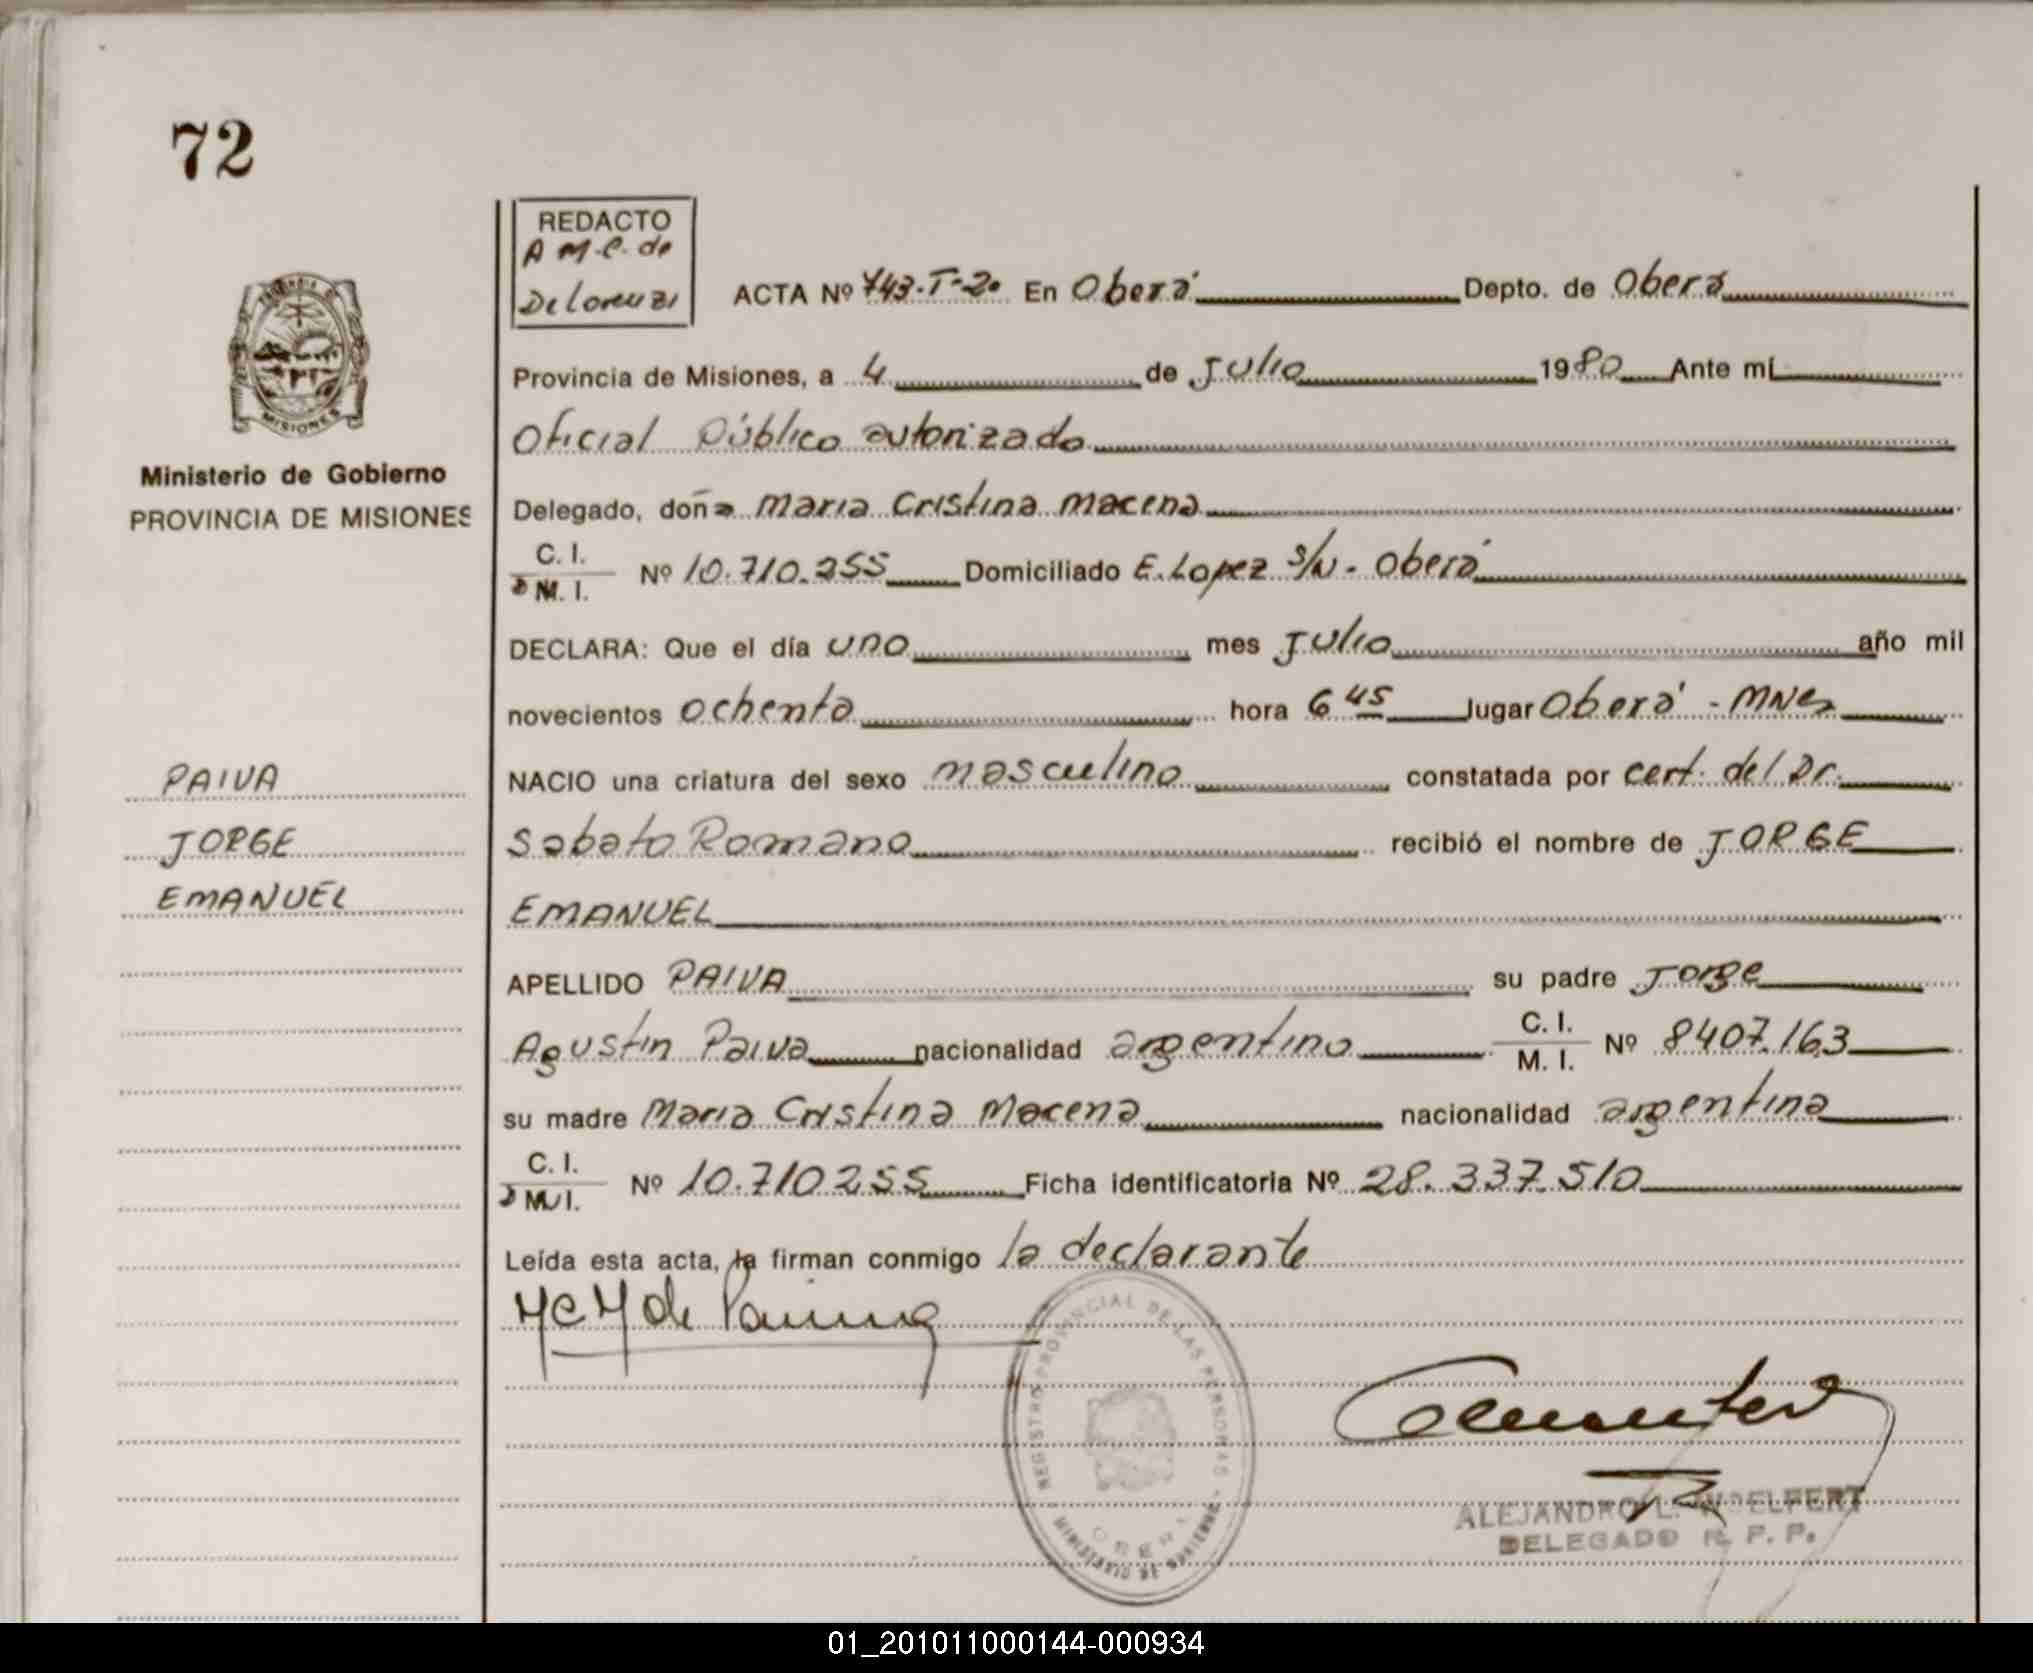 72
REDACTO
A M.C. de
De Lorenzi
ACTA Nº 743-T-2º En Oberá Depto. de Oberá
Provincia de Misiones, a 4 de Julio 1980 Ante mí
Oficial Público autorizado
MISIONES
Ministerio de Gobierno
PROVINCIA DE MISIONES
Delegado, doña Maria Cristina Macena
C. I.
D M. I. Nº 10.710.255 Domiciliado E. Lopez s/N - Oberá
DECLARA: Que el día uno mes Julio año mil
novecientos ochenta hora 6 45 lugar Oberá - MNes
NACIO una criatura del sexo masculino constatada por cert. del Dr.
Sabato Romano recibió el nombre de JORGE
EMANUEL
PAIVA
JORGE
EMANUEL
APELLIDO PAIVA su padre Jorge
Agustin Paiva nacionalidad argentino C. I. M. I. Nº 8407.163
su madre Maria Cristina Macena nacionalidad argentina
C. I.
D M. I. Nº 10.710255 Ficha identificatoria Nº 28.337.510
Leída esta acta, la firman conmigo la declarante
MCM de Paiva
REGISTRO PROVINCIAL DE LAS PERSONAS - MINISTERIO DE GOBIERNO
OBERA
ALEJANDRO L.
DELEGADO R. P. P.
01_201011000144-000934